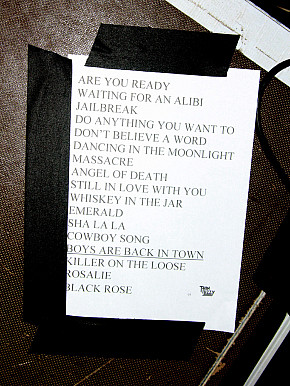 ARE YOU READY
WAITING FOR AN ALIBI
JAILBREAK
DO ANYTHING YOU WANT TO
DON'T BELIEVE A WORD
DANCING IN THE MOONLIGHT
MASSACRE
ANGEL OF DEATH
STILL IN LOVE WITH YOU
WHISKEY IN THE JAR
EMERALD
SHA LA LA
COWBOY SONG
BOYS ARE BACK IN TOWN
KILLER ON THE LOOSE
ROSALIE
BLACK ROSE
THIN LIZZY